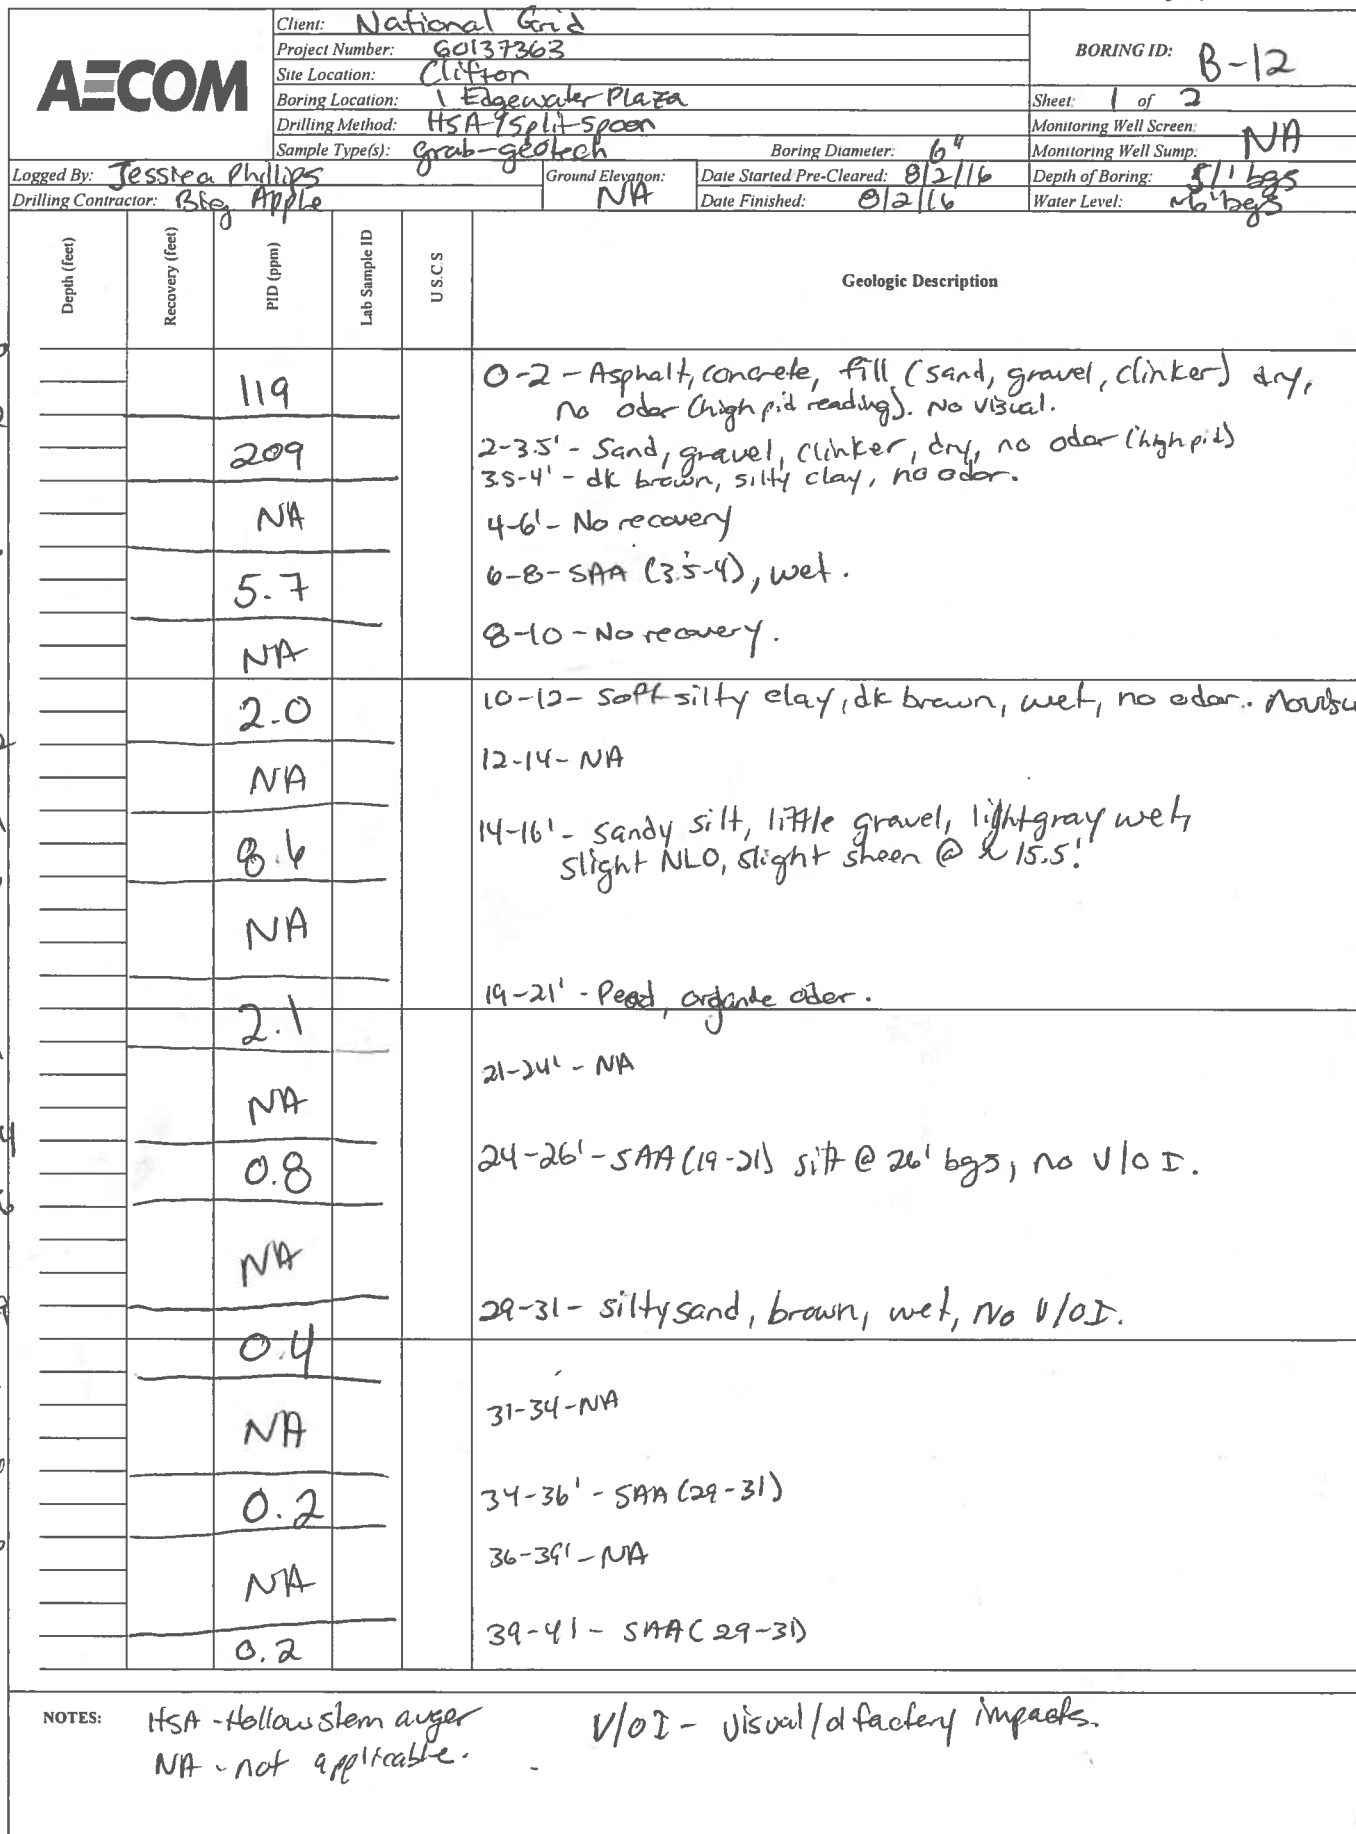 AECOM
Client: National Grid
Project Number: 60137363
Site Location: Clifton
Boring Location: 1 Edgewater Plaza
Drilling Method: HSA-Split-Spoon
Sample Type(s): grab-geotech
Boring Diameter: 6"
BORING ID: B-12
Sheet: 1 of 2
Monitoring Well Screen:
Monitoring Well Sump: NA
Logged By: Jessica Phillips
Ground Elevation: NA
Date Started Pre-Cleared: 8/2/16
Depth of Boring: 51' bgs
Drilling Contractor: Big Apple
Date Finished: 8/2/16
Water Level: ~6' bgs
Depth (feet) Recovery (feet) PID (ppm) Lab Sample ID U.S.C.S Geologic Description
119 0-2 - Asphalt, concrete, fill (sand, gravel, clinker) dry,
no odor (high pid reading). No visual.
209 2-3.5' - Sand, gravel, clinker, dry, no odor (high pid)
3.5-4' - dk brown, silty clay, no odor.
NA 4-6' - No recovery
5.7 6-8 - SAA (3.5-4), wet.
NA 8-10 - No recovery.
2.0 10-12 - Soft silty clay, dk brown, wet, no odor.
NA 12-14 - NA
8.6 14-16' - sandy silt, little gravel, light gray wet,
slight NLO, slight sheen @ ~15.5'.
NA
2.1 19-21' - Peat, organic odor.
NA 21-24' - NA
0.8 24-26' - SAA (19-21) silt @ 26' bgs, no V/O I.
NA
0.4 29-31 - silty sand, brown, wet, No V/OI.
NA 31-34 - NA
0.2 34-36' - SAA (29-31)
NA 36-39' - NA
0.2 39-41 - SAA (29-31)
NOTES: HSA - Hollow stem auger V/OI - visual/olfactory impacts.
NA - not applicable.